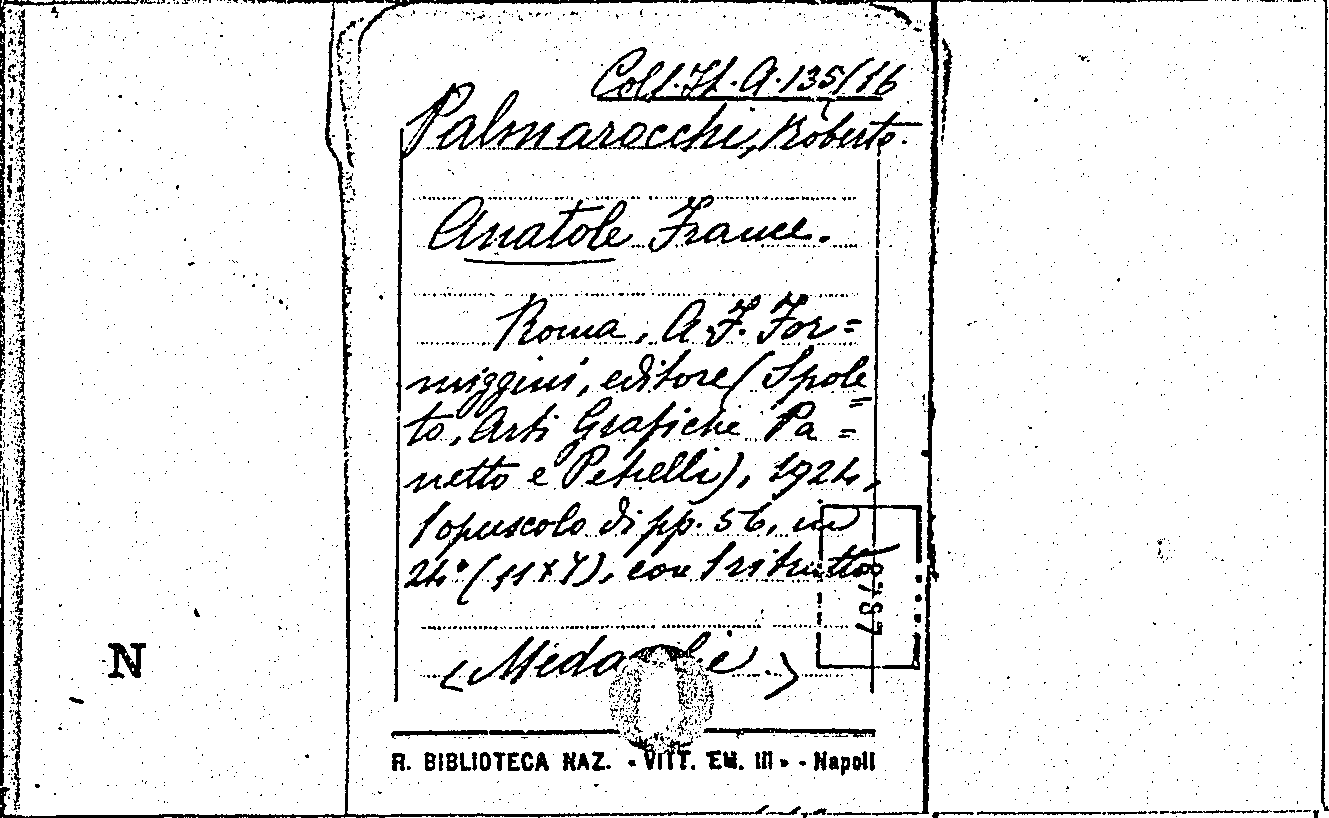 Coll. It. A. 135/16
Palmarocchi, Roberto.
Anatole France.
Roma, A. F. For=
miggini, editore (Spole=
to, Arti Grafiche Pa=
netto e Petrelli), 1924,
1 opuscolo di pp. 56, in
24° (11x7), con 1 ritratto
787
N
R. BIBLIOTECA NAZ. « VITT. EM. III » - Napoli